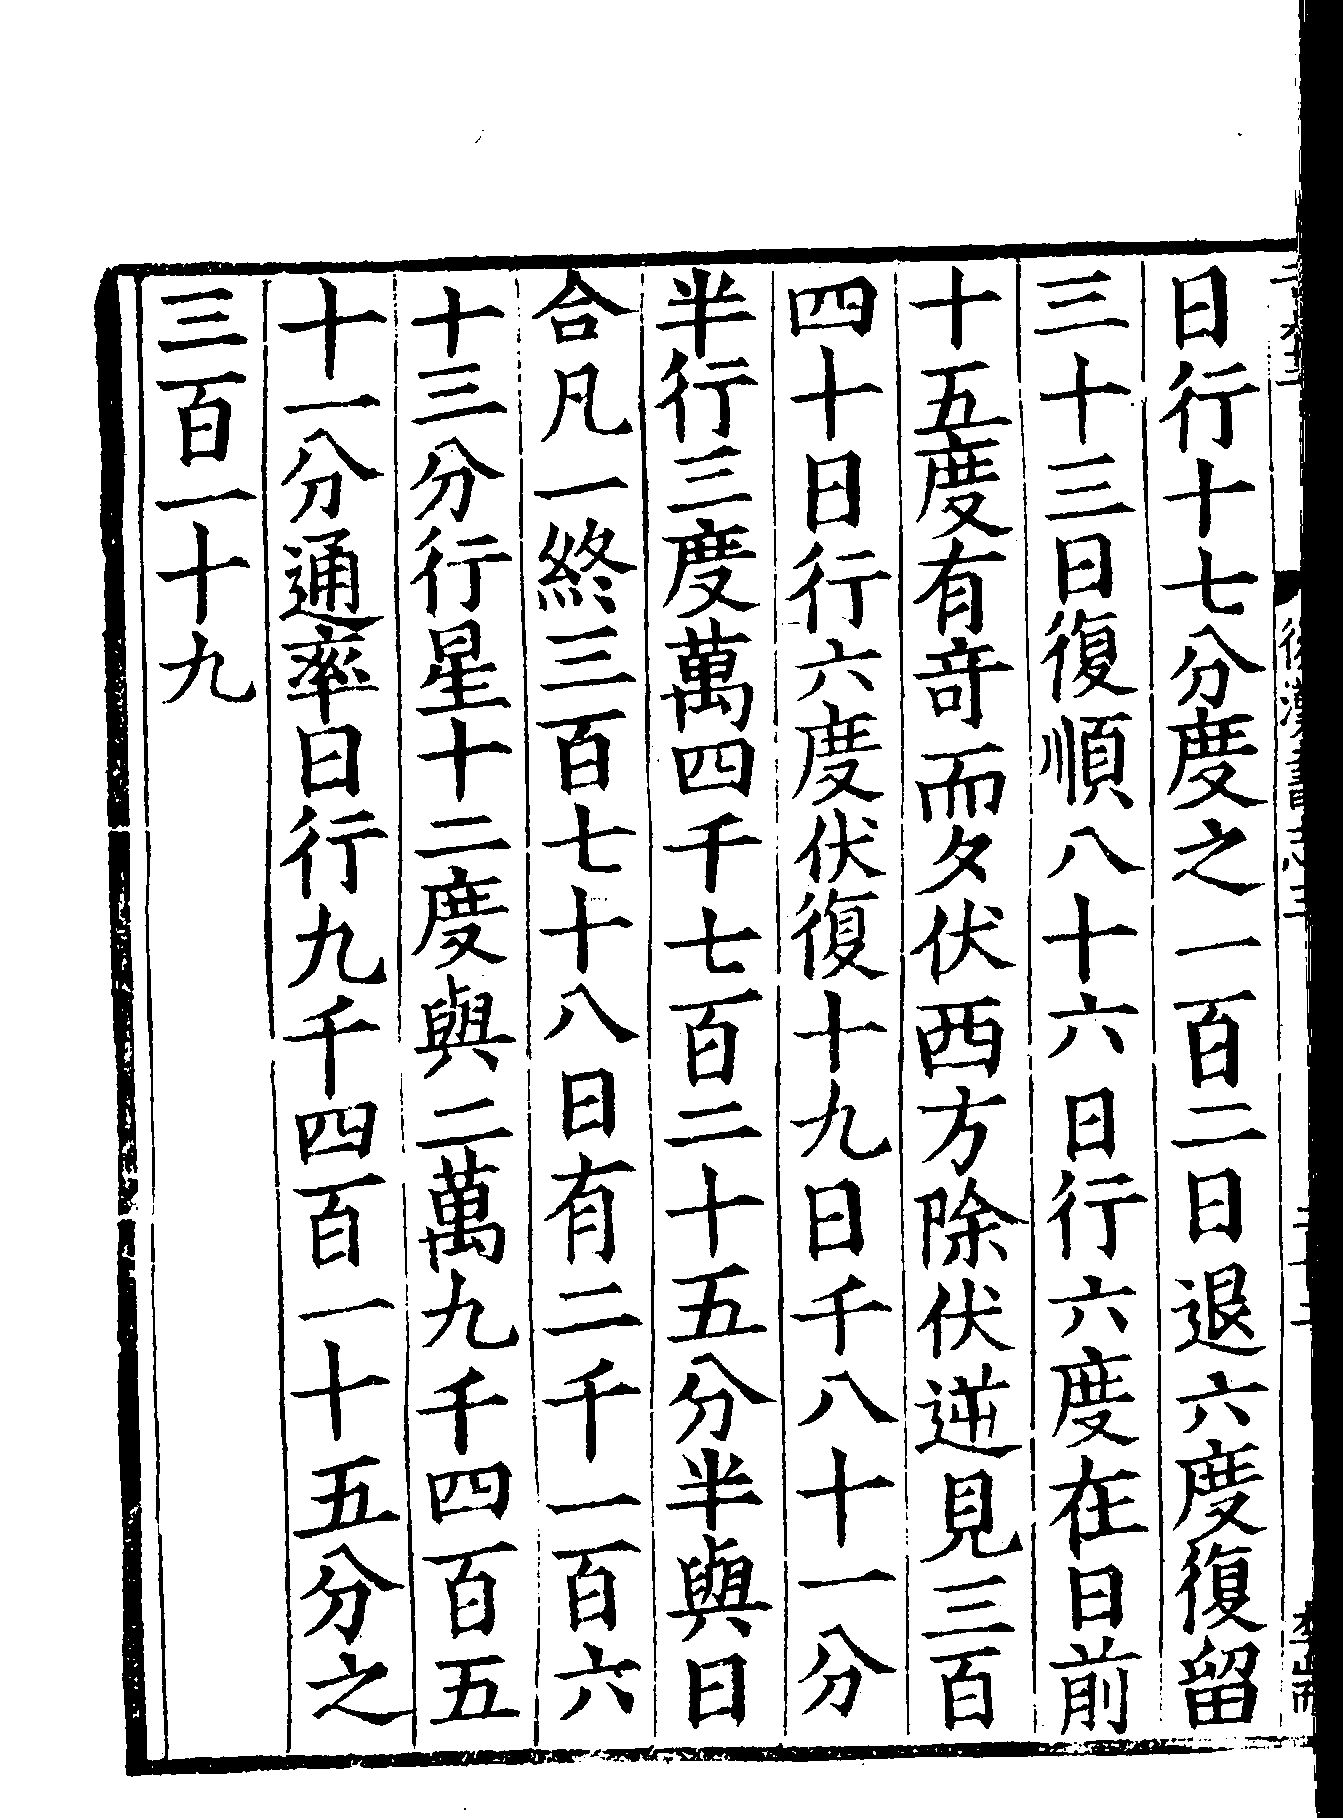 日行十七分度之一百二日退六度復留
三十三日復順八十六日行六度在日前
十五度有奇而夕伏西方除伏逆見三百
四十日行六度伏復十九日千八十一分
半行三度萬四千七百二十五分半與日
合凡一終三百七十八日有二千一百六
十三分行星十二度與二萬九千四百五
十一分通率日行九千四百一十五分之
三百一十九